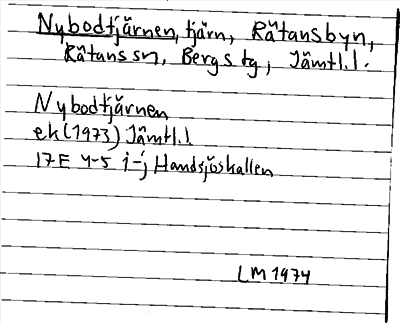 Nybodtjärnen, tjärn, Rätansbyn,
Rätans sn, Bergs tg, Jämtl.l.
Nybodtjärnen
ek(1973) Jämtl.l.
17E 4-5 i-j Handsjöskallen
LM 1974